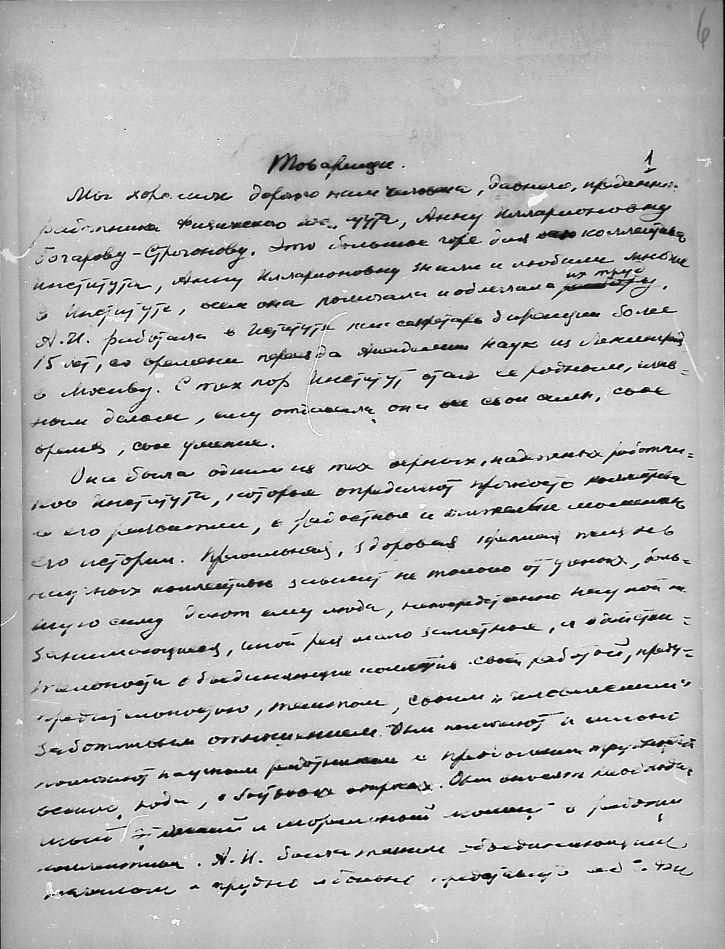 6
1
Товарищи.
Мы хоронили дорогого нам человека, давнего, преданного
работника Физического института, Анну Илларионовну
Бочарову-Строганову. Это большое горе для всего коллектива
Института, Анну Илларионовну знали и любили многие
в Институте, всем она помогала и облегчала их труд работу.
А.И. работала в Институте как секретарь дирекции более
15 лет, со времени переезда Академии наук из Ленинграда
в Москву. С тех пор Институт стал ее родным, глав-
ным делом, ему отдавала она все свои силы, свое
время, свое умение.
Она была одним из тех верных, надежных работни-
ков Института, которые определяют прочность коллектива
и его развитие, в радостные и тяжелые моменты
его истории. Правильная, здоровая крепкая жизнь
научных коллективов зависит не только от ученых, боль-
шую силу дают ему люди, непосредственно наукой не
занимающиеся, иной раз мало заметные, а в действи-
тельности объединяющие коллектив своей работой, преду-
предительностью, тактом, своим
заботливым отношением. Они помогают и
помогают научным работникам в преодолении трудностей
военные года, в бытовых вопросах. Они вносят необходи-
мый и моральный в работу
коллектива. А.И. была таким объединяющим
началом и трудно представить себе